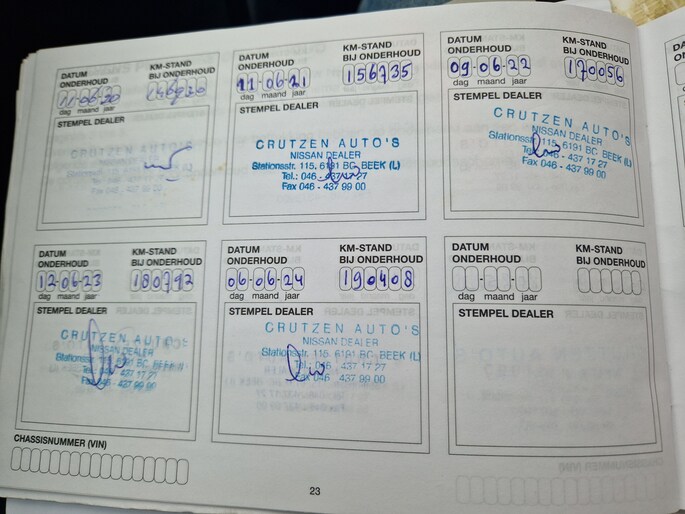 DATUM ONDERHOUD
KM-STAND BIJ ONDERHOUD
11-06-20
dag maand jaar
STEMPEL DEALER
CRUTZEN AUTO'S
NISSAN DEALER
Fax 046 - 437 99 00
DATUM ONDERHOUD
KM-STAND BIJ ONDERHOUD
11-06-21
156735
dag maand jaar
STEMPEL DEALER
CRUTZEN AUTO'S
NISSAN DEALER
Stationsstr. 115, 6191 BC BEEK (L)
Tel.: 046 - 437 17 27
Fax 046 - 437 99 00
DATUM ONDERHOUD
KM-STAND BIJ ONDERHOUD
09-06-22
170056
dag maand jaar
STEMPEL DEALER
CRUTZEN AUTO'S
NISSAN DEALER
Stationsstr. 115, 6191 BC BEEK (L)
Tel. 046 - 437 17 27
Fax 046 - 437 99 00
DATUM ONDERHOUD
KM-STAND BIJ ONDERHOUD
12-06-23
180792
dag maand jaar
STEMPEL DEALER
CRUTZEN AUTO'S
NISSAN DEALER
Stationsstr. 115, 6191 BC BEEK
Tel. 046 - 437 17 27
Fax 046 - 437 99 00
DATUM ONDERHOUD
KM-STAND BIJ ONDERHOUD
06-06-24
190408
dag maand jaar
STEMPEL DEALER
CRUTZEN AUTO'S
NISSAN DEALER
Stationsstr. 115, 6191 BC BEEK (L)
Tel. 046 - 437 17 27
Fax 046 - 437 99 00
DATUM ONDERHOUD
KM-STAND BIJ ONDERHOUD
dag maand jaar
STEMPEL DEALER
CHASSISNUMMER (VIN)
23